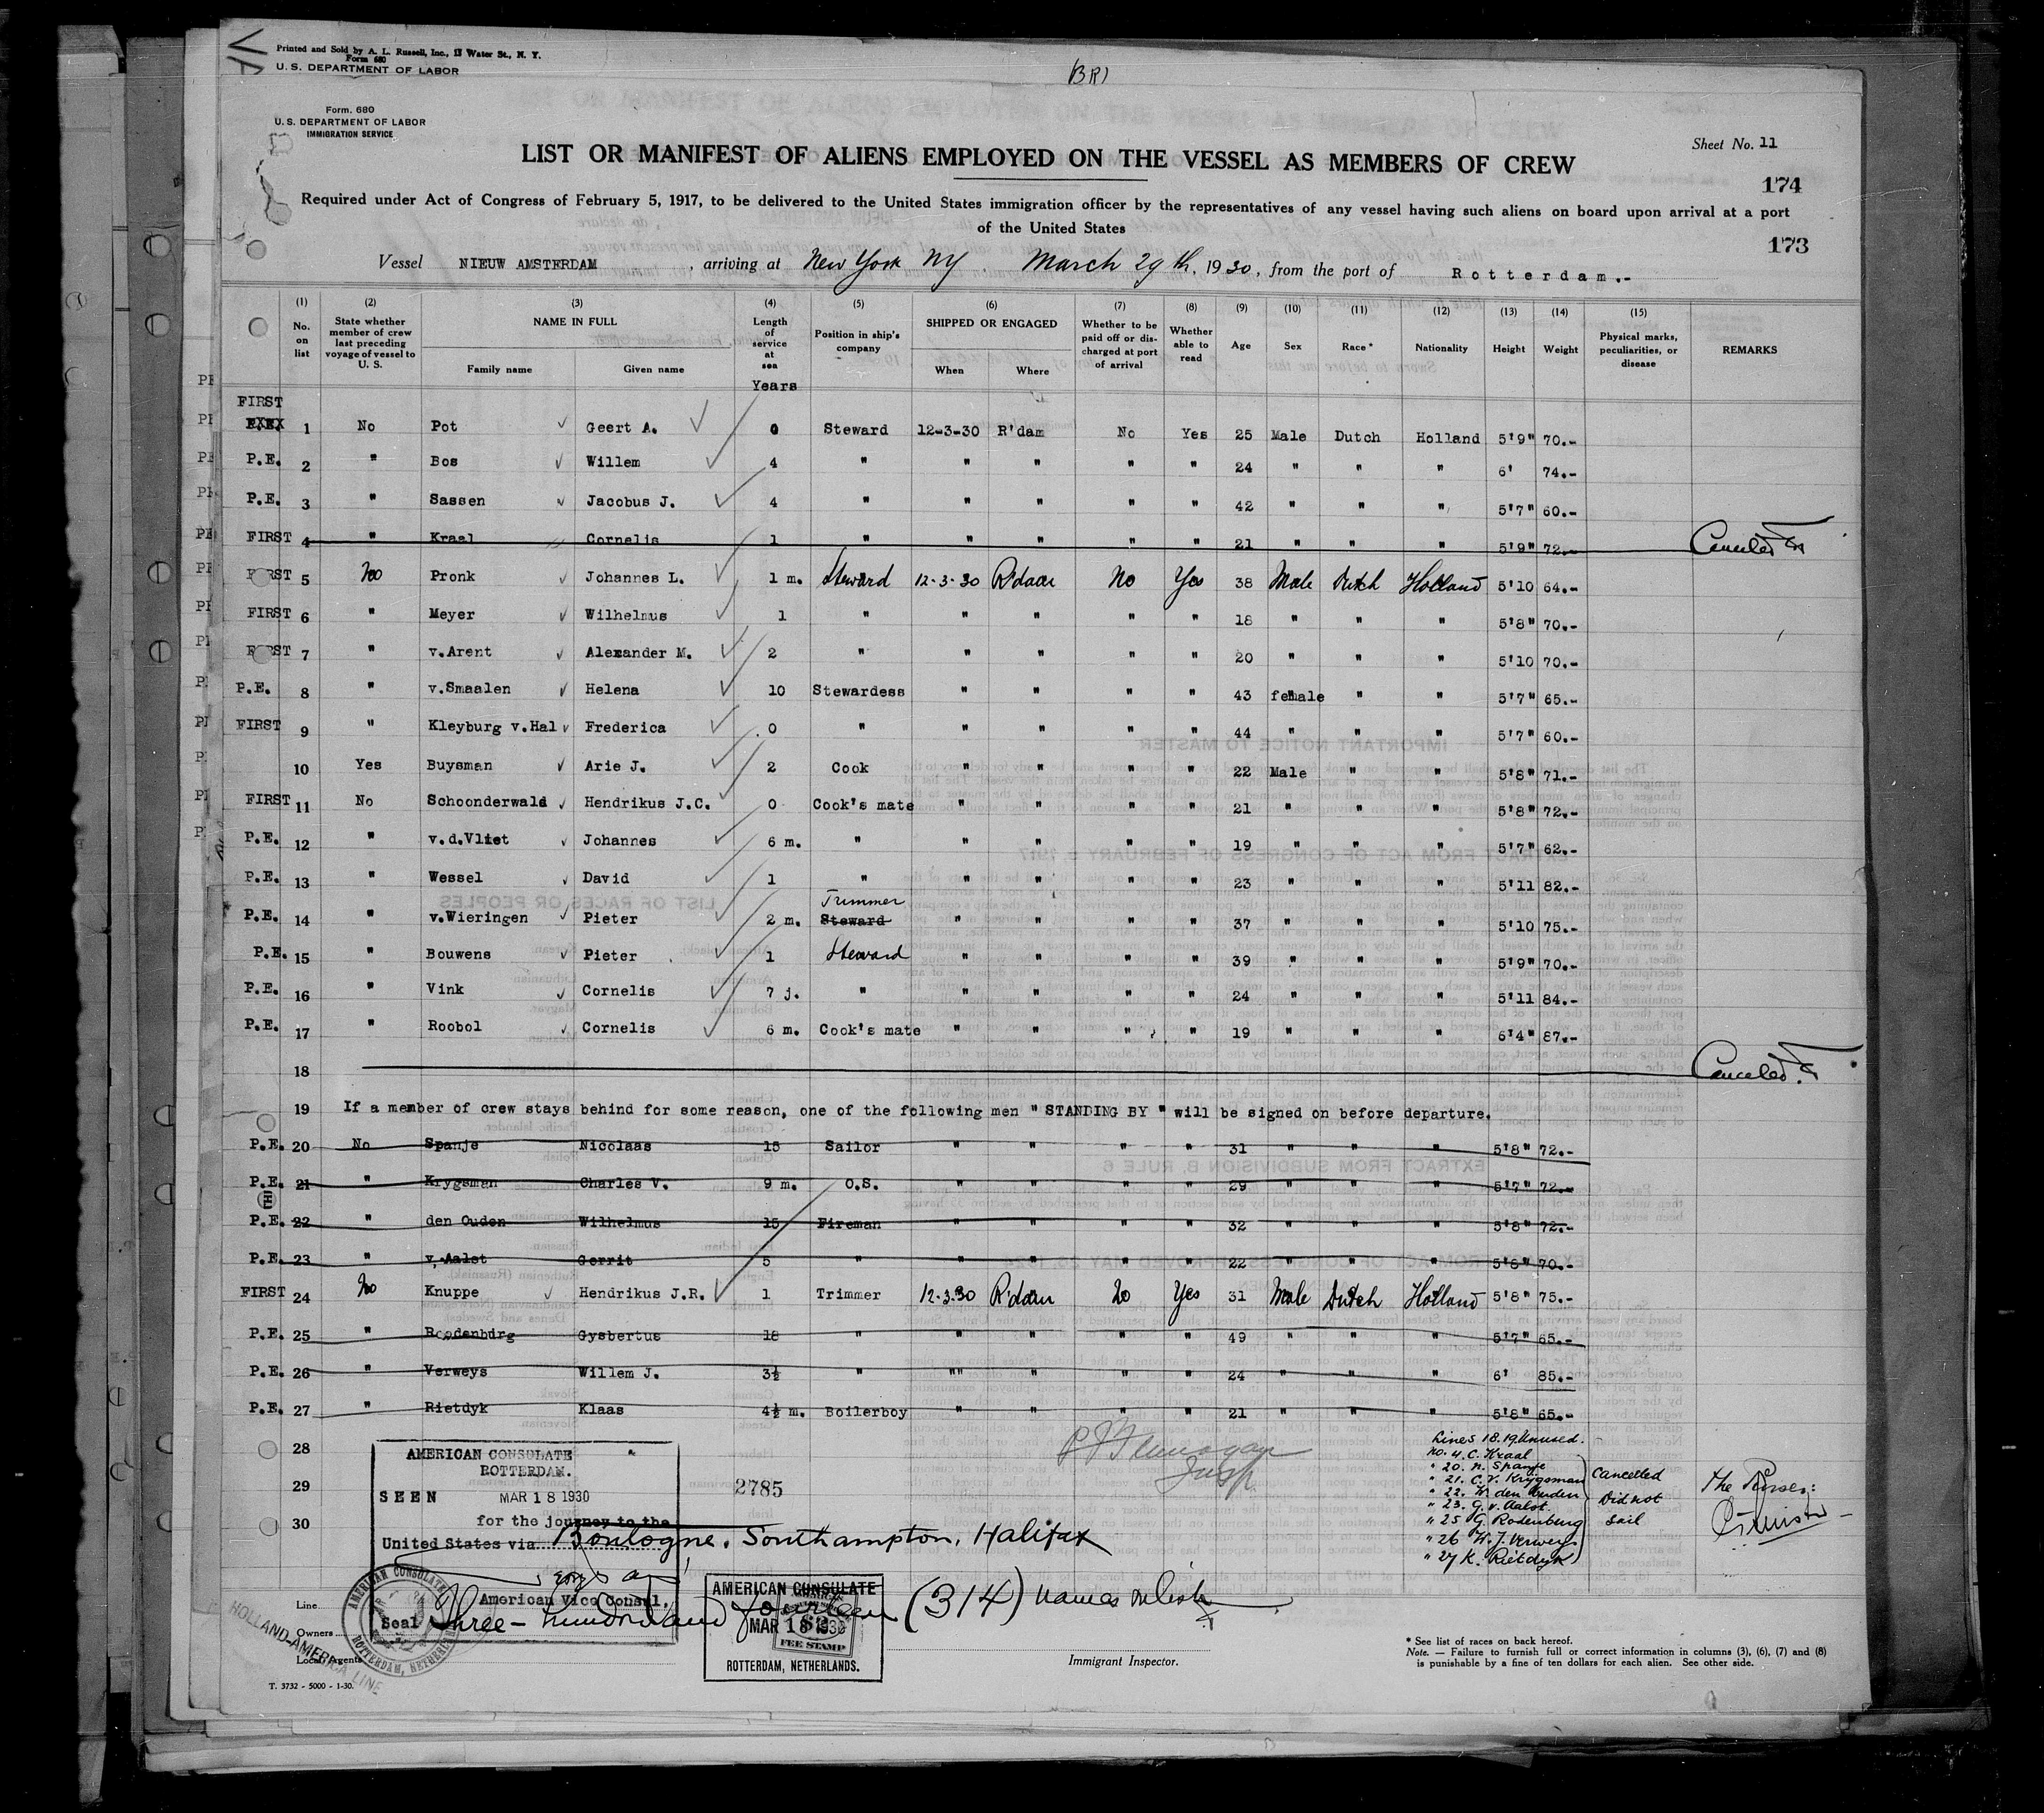 Printed and Sold by A. L. Russell, Inc., 17 Water St., N. Y.
Form 680
U. S. DEPARTMENT OF LABOR
BRI
Form. 680
U. S. DEPARTMENT OF LABOR
IMMIGRATION SERVICE
Sheet No. 11
LIST OR MANIFEST OF ALIENS EMPLOYED ON THE VESSEL AS MEMBERS OF CREW
174
Required under Act of Congress of February 5, 1917, to be delivered to the United States immigration officer by the representatives of any vessel having such aliens on board upon arrival at a port
of the United States
173
Vessel NIEUW AMSTERDAM , arriving at New York NY. March 29th, 1930, from the port of Rotterdam.-
(1) (2) (3) (4) (5) (6) (7) (8) (9) (10) (11) (12) (13) (14) (15)
No. on list State whether member of crew last preceding voyage of vessel to U. S. NAME IN FULL Family name Given name Length of service at sea Years Position in ship's company SHIPPED OR ENGAGED When Where Whether to be paid off or discharged at port of arrival Whether able to read Age Sex Race* Nationality Height Weight Physical marks, peculiarities, or disease REMARKS
FIRST 1 No Pot Geert A. 0 Steward 12-3-30 R'dam No Yes 25 Male Dutch Holland 5'9" 70.-
P.E. 2 " Bos Willem 4 " " " " " 24 " " " 6' 74.-
P.E. 3 " Sassen Jacobus J. 4 " " " " " 42 " " " 5'7" 60.-
FIRST 4 " Kraal Cornelis 1 " " " " " 21 " " " 5'9" 72.- Canceled
FIRST 5 No Pronk Johannes L. 1 m. Steward 12-3-30 R'dam No Yes 38 Male Dutch Holland 5'10 64.-
FIRST 6 " Meyer Wilhelmus 1 " " " " " 18 " " " 5'8" 70.-
FIRST 7 " v.Arent Alexander M. 2 " " " " " 20 " " " 5'10 70.-
P.E. 8 " v.Smaalen Helena 10 Stewardess " " " " 43 female " " 5'7" 65.-
FIRST 9 " Kleyburg v.Hal Frederica 0 " " " " " 44 " " " 5'7" 60.-
10 Yes Buysman Arie J. 2 Cook " " " " 22 Male " " 5'8" 71.-
FIRST 11 No Schoonderwald Hendrikus J.C. 0 Cook's mate " " " " 21 " " " 5'8" 72.-
P.E. 12 " v.d.Vliet Johannes 6 m. " " " " " 19 " " " 5'7" 62.-
P.E. 13 " Wessel David 1 " " " " " 23 " " " 5'11 82.-
Trimmer
P.E. 14 " v.Wieringen Pieter 2 m. Steward " " " " 37 " " " 5'10 75.-
P.E. 15 " Bouwens Pieter 1 Steward " " " " 39 " " " 5'9" 70.-
P.E. 16 " Vink Cornelis 7 j. " " " " " 24 " " " 5'11 84.-
P.E. 17 " Roobol Cornelis 6 m. Cook's mate " " " " 19 " " " 6'4" 87.-
18 Canceled.
19 If a member of crew stays behind for some reason, one of the following men "STANDING BY" will be signed on before departure.
P.E. 20 No Spanje Nicolaas 15 Sailor " " " " 31 " " " 5'8" 72.-
P.E. 21 " Krygsman Charles V. 9 m. O.S. " " " " 29 " " " 5'7" 72.-
P.E. 22 " den Ouden Wilhelmus 15 Fireman " " " " 32 " " " 5'8" 72.-
P.E. 23 " v.Aalst Gerrit 5 " " " " " 22 " " " 5'8" 70.-
FIRST 24 No Knuppe Hendrikus J.R. 1 Trimmer 12-3.30 R'dam No Yes 31 Male Dutch Holland 5'8" 75.-
P.E. 25 " Roodenburg Gysbertus 18 " " " " " 49 " " " 5'7" 65.-
P.E. 26 " Verweys Willem J. 3½ " "" " " " 24 " " " 6' 85.-
P.E. 27 " Rietdyk Klaas 4½ m. Boilerboy " " " " 21 " " " 5'8" 65.-
28
29
30
Lines 18.19 Unused.
No. 4. C. Kraal
" 20. N. Spanje
" 21. C.V. Krijgsman
" 22. W. den Ouden
" 23. G. v. Aalst.
" 25 G. Rodenburg
" 26 W. J. Verweys
" 27 K. Rietdyk
Cancelled
Did not
sail
The Purser:
Insp.
2785
AMERICAN CONSULATE
ROTTERDAM.
SEEN MAR 18 1930
for the journey to the
United States via Boulogne, Southampton, Halifax
American Vice Consul.
Seal Three-hundred and fourteen (314) names in list
AMERICAN CONSULATE
ROTTERDAM, NETHERLANDS
AMERICAN CONSULATE
MAR 18 1930
FEE STAMP
ROTTERDAM, NETHERLANDS.
Line
Owners
Local Agents
HOLLAND-AMERICA LINE
Immigrant Inspector.
* See list of races on back hereof.
Note. — Failure to furnish full or correct information in columns (3), (6), (7) and (8)
is punishable by a fine of ten dollars for each alien. See other side.
T. 3732 - 5000 - 1-30.